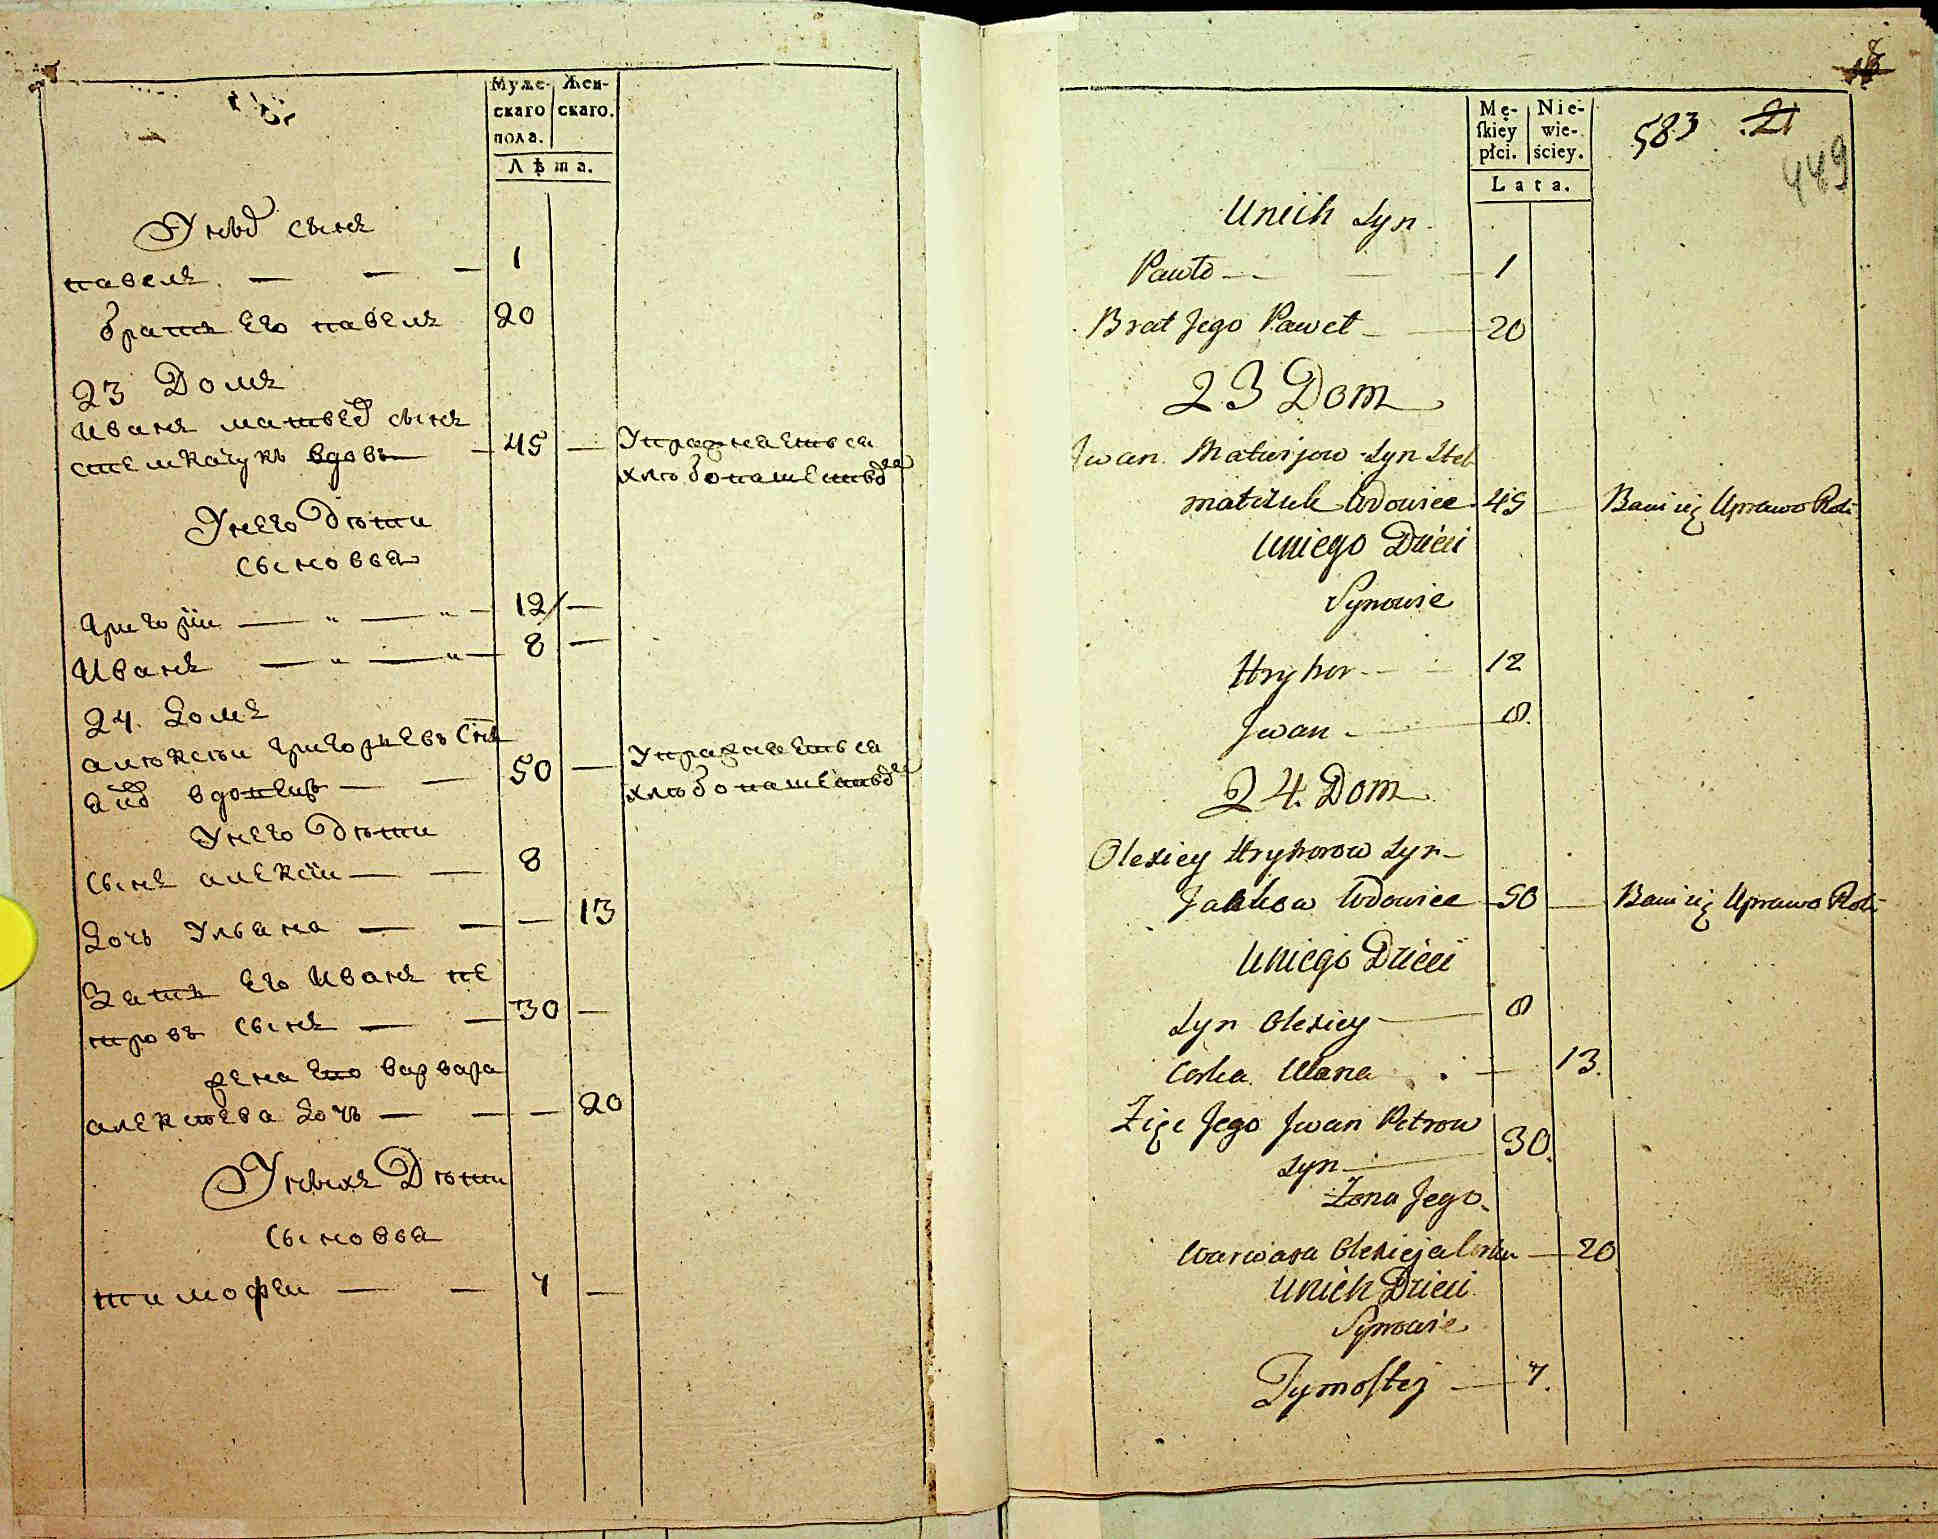 Муже- Жен-
скаго скаго.
пола.
Лѣта.
У ныхъ сынъ
павелъ — — — 1
братъ его павелъ 20
23 Домъ
Иванъ матвеевъ сынъ
вдовъ — 45 — Упражняетъся
хлебопашествомъ
У него дѣти
сыновья
григорий — „ — „ — 12 —
Иванъ — „ — „ — 8 —
24. Домъ
алѣксѣи григорьевъ снъ
вдовецъ — — 50 — Упражняетъся
хлебопашествомъ
У него дѣти
сынъ алексий — — 8
Дочъ Ульана — — — 13
Зять его Иванъ пе
тровъ сынъ — — 30 —
жена его варвара
алексѣева дочъ — — — 20
У ныхъ Дѣти
сыновья
тимофеи — — 7 —
Mę- Nie-
skiey wie-
płci. ściey.
Lata.
583 21
449
Unich Syn
Pawło — — 1
Brat Jego Paweł — — 20
23 Dom
Jwan Matwijow Syn Stel
maszuk Wdowiec 45 — Bawi się Uprawo Roli
Uniego Dzieci
Synowie
Hryhor — 12
Jwan — 8.
24. Dom
Olexiey Hryhorow Syn
Jackow Wdowiec 50 — Bawi się Uprawo Roli
Uniego Dzieci
Syn Olexiey — 8
Corka Ulana — 13.
Zięć Jego Jwan Petrow
Syn — 30.
Żona Jego
Warwara Olexieja Corka — 20
Unich Dzieci
Synowie
Tymoftej — 7.